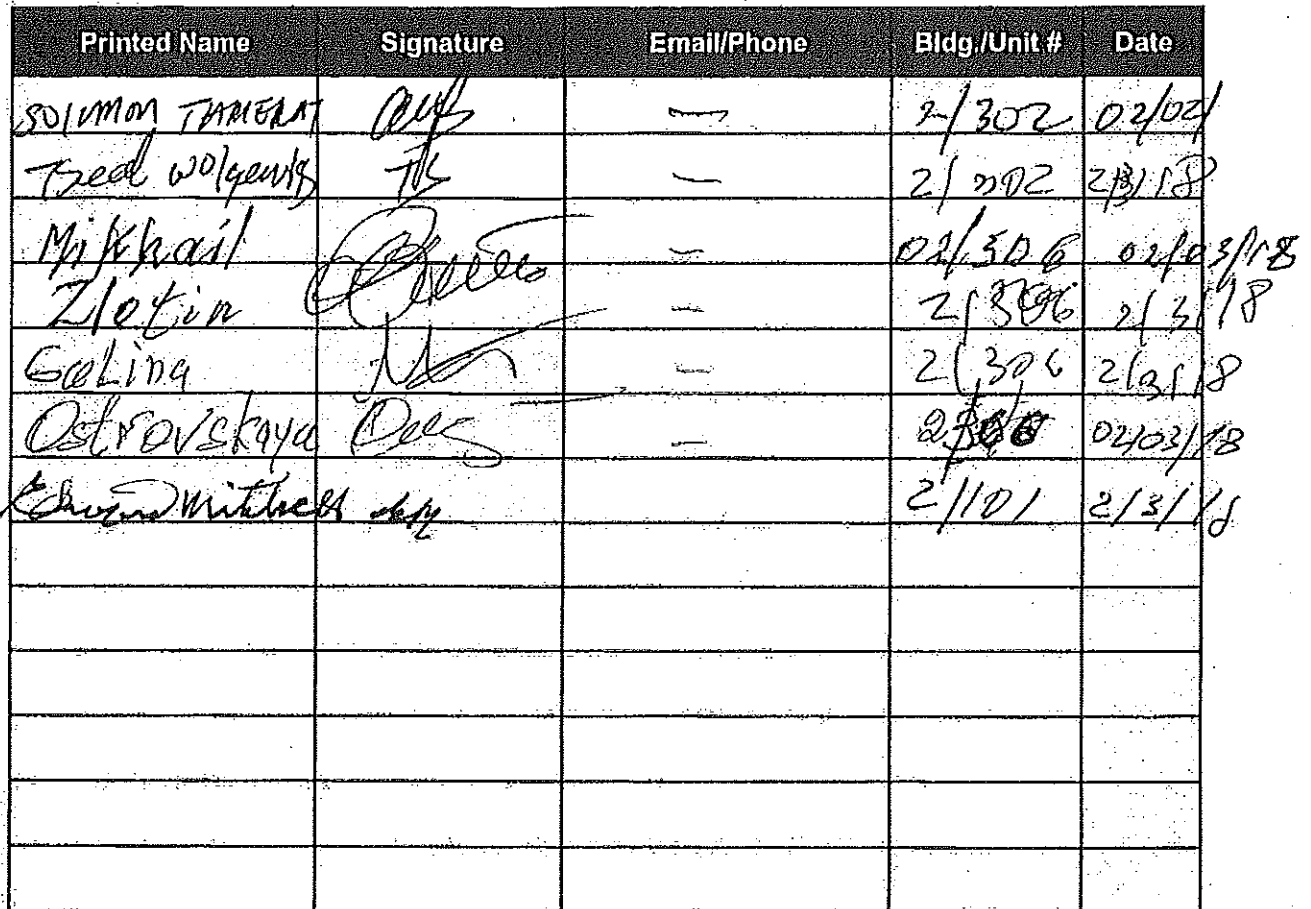 Printed Name Signature Email/Phone Bldg./Unit # Date
SOLOMON TAMERAT — 2/302 02/02/
Tsed — 2/302 2/3/18
Mikhail — 02/306 02/03/18
Zlotin — 2/306 2/3/18
Galina — 2/306 2/3/18
Ostrovskaya — 02/03/18
Mitchell 2/101 2/3/18